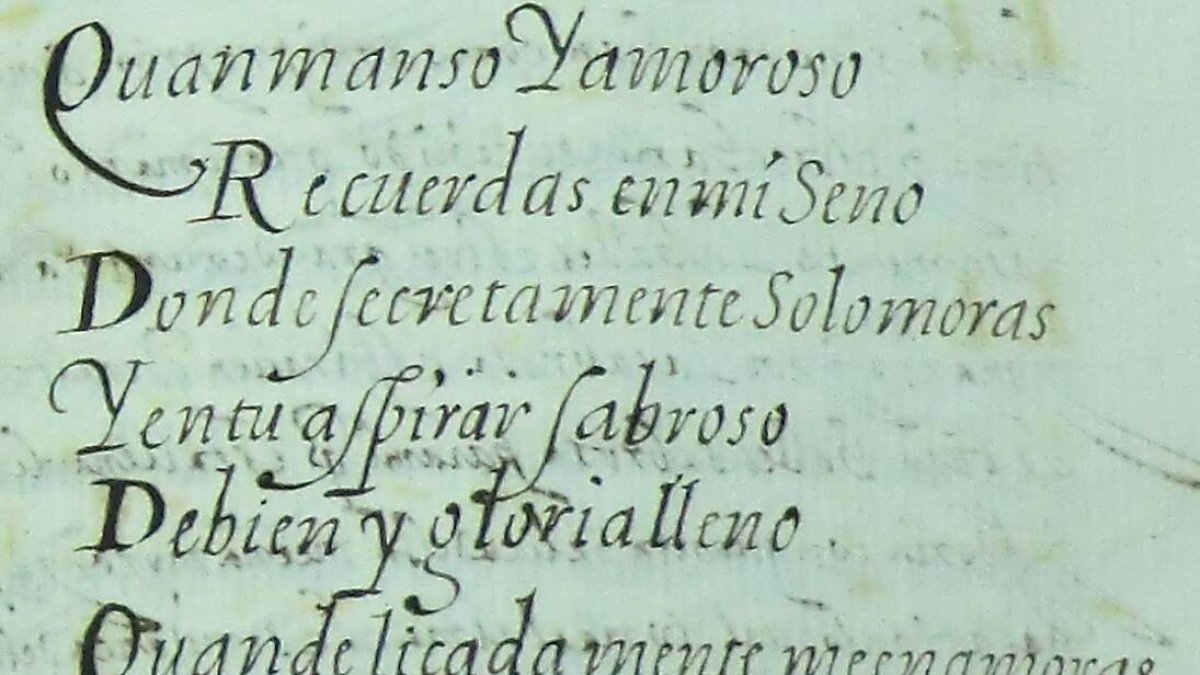 Quan manso Y amoroso
Recuerdas en mí Seno
Donde secretamente Solo moras
Y en tu aspirar sabroso
De bien y gloria lleno.
Quan delicadamente me enamoras